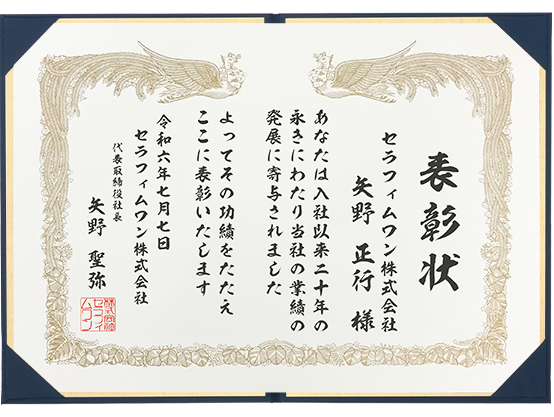 表彰状
セラフィムワン株式会社
矢野 正行 様
あなたは入社以来二十年の
永きにわたり当社の業績の
発展に寄与されました
よってその功績をたたえ
ここに表彰いたします
令和六年七月七日
セラフィムワン株式会社
代表取締役社長
矢野 聖弥
株式会社
セラフィ
ムワン